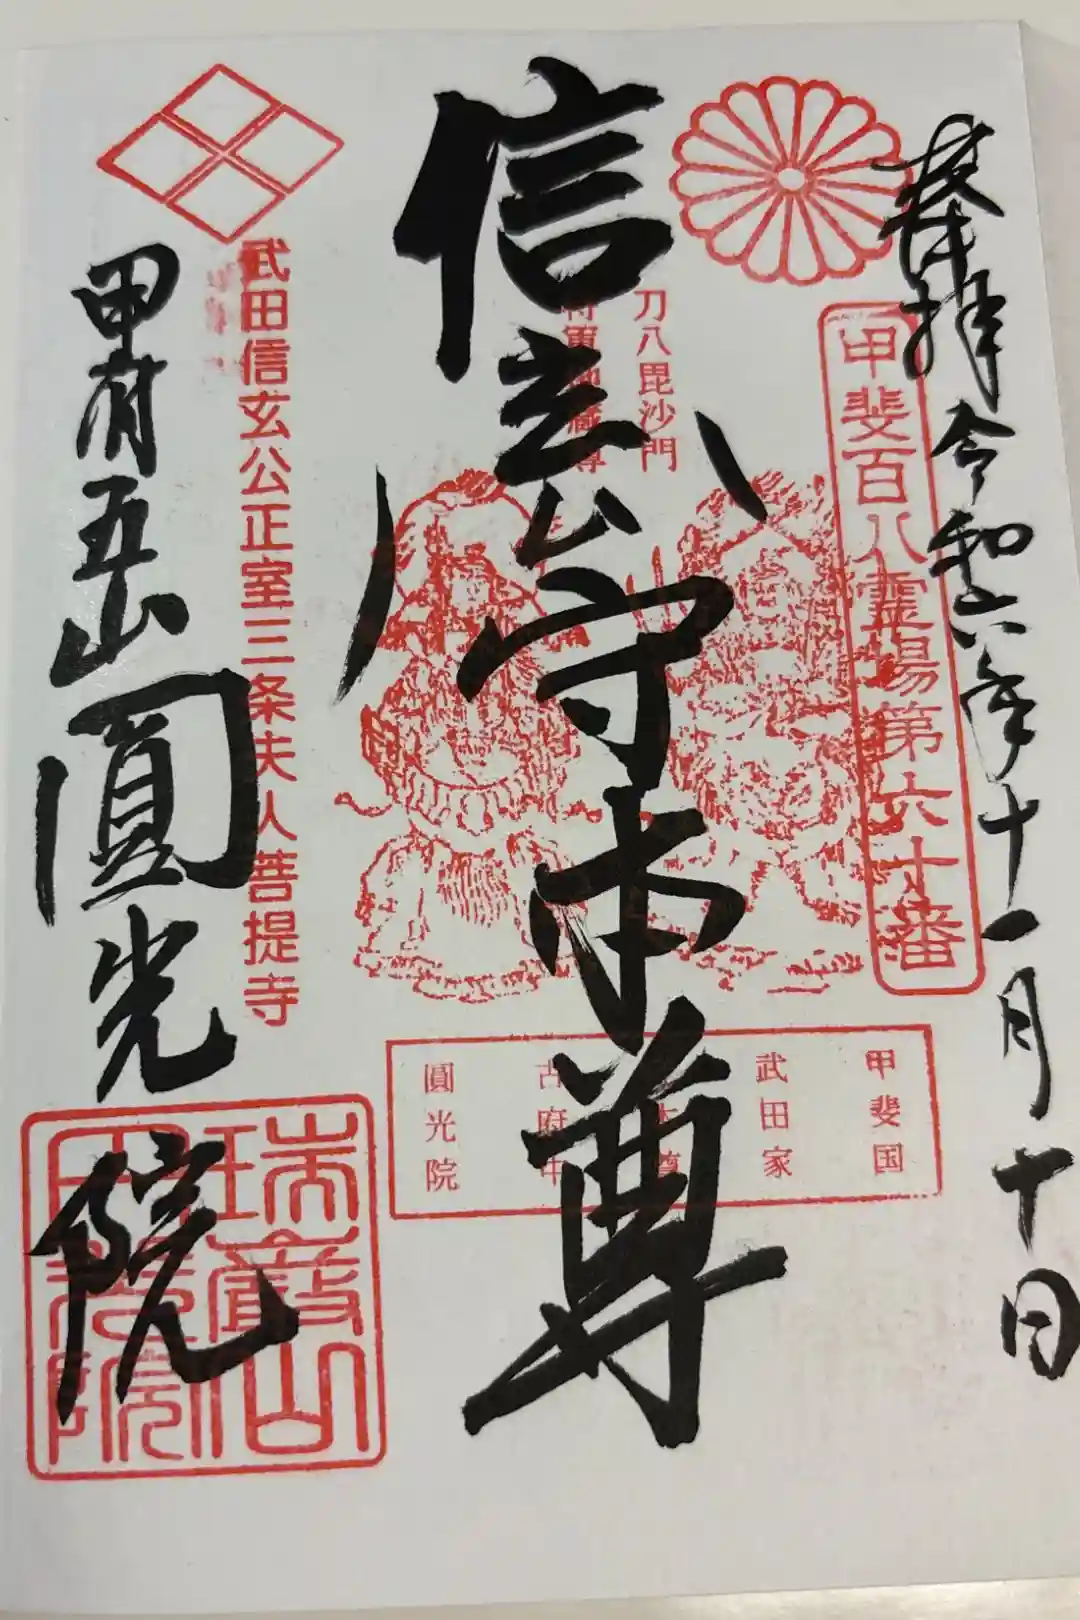 奉拝 令和六年十一月十日
甲斐百八霊場第六十番
刀八毘沙門
将軍地蔵尊
信玄公守本尊
甲斐国
武田家
本尊
古府中
圓光院
武田信玄公正室三条夫人菩提寺
甲府五山 圓光院
瑞巌山
圓光院